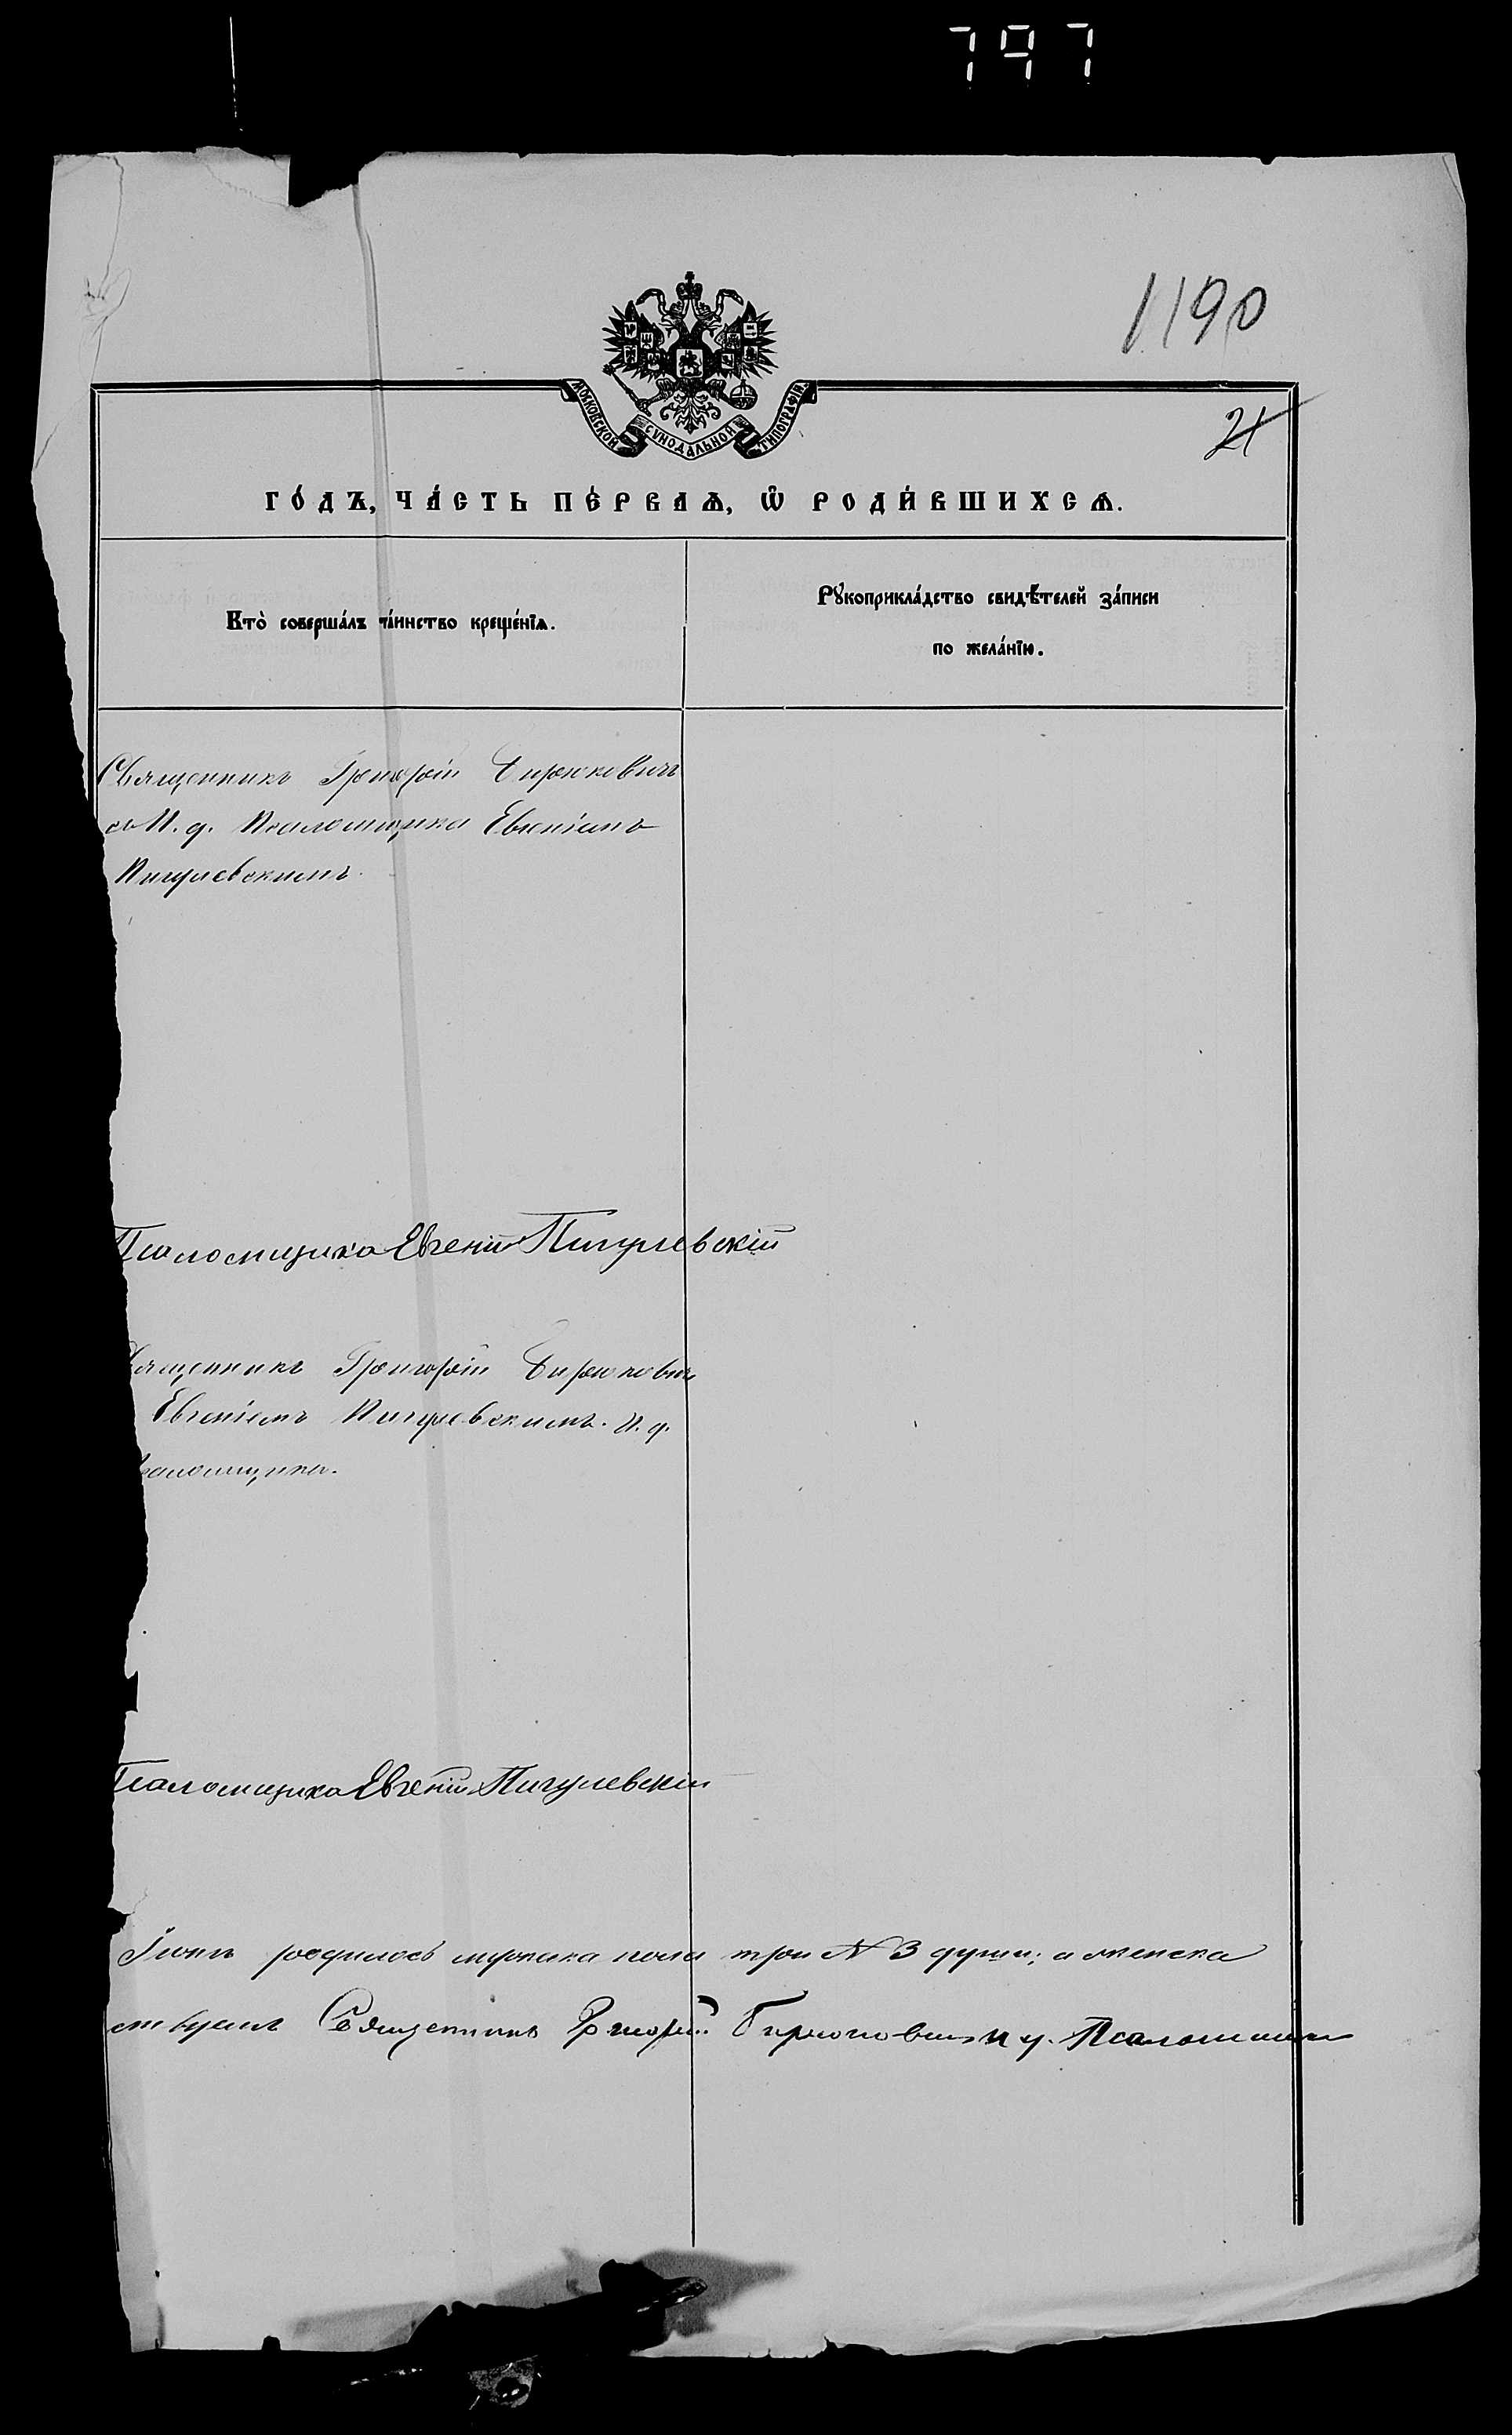 797
1190
21
МОСКОВСКОЙ СѴНОДАЛЬНОЙ ТИПОГРАФІИ
ГО́ДЪ, ЧА́СТЬ ПЕ́РВАѦ, Ѡ РОДИ́ВШИХСѦ.
Кто̀ соверша́лъ та́инство креще́нїѧ.
Рꙋкоприкла́дство свидѣ́телей за́писи
по жела́нїю.
Священникъ Григорій Бирюковичъ
съ И. д. Псаломщика Евгеніемъ
Пигулевскимъ.
Псаломщика Евгеній Пигулевскій
вященникъ Григорій Бирюковичъ
Евгеніемъ Пигулевскимъ. И. д.
саломщика.
Псаломщика Евгеній Пигулевскій
родилось мужеска пола три № 3 души; а женска
Священникъ Григорій Бирюковичъ И д. Псаломщика